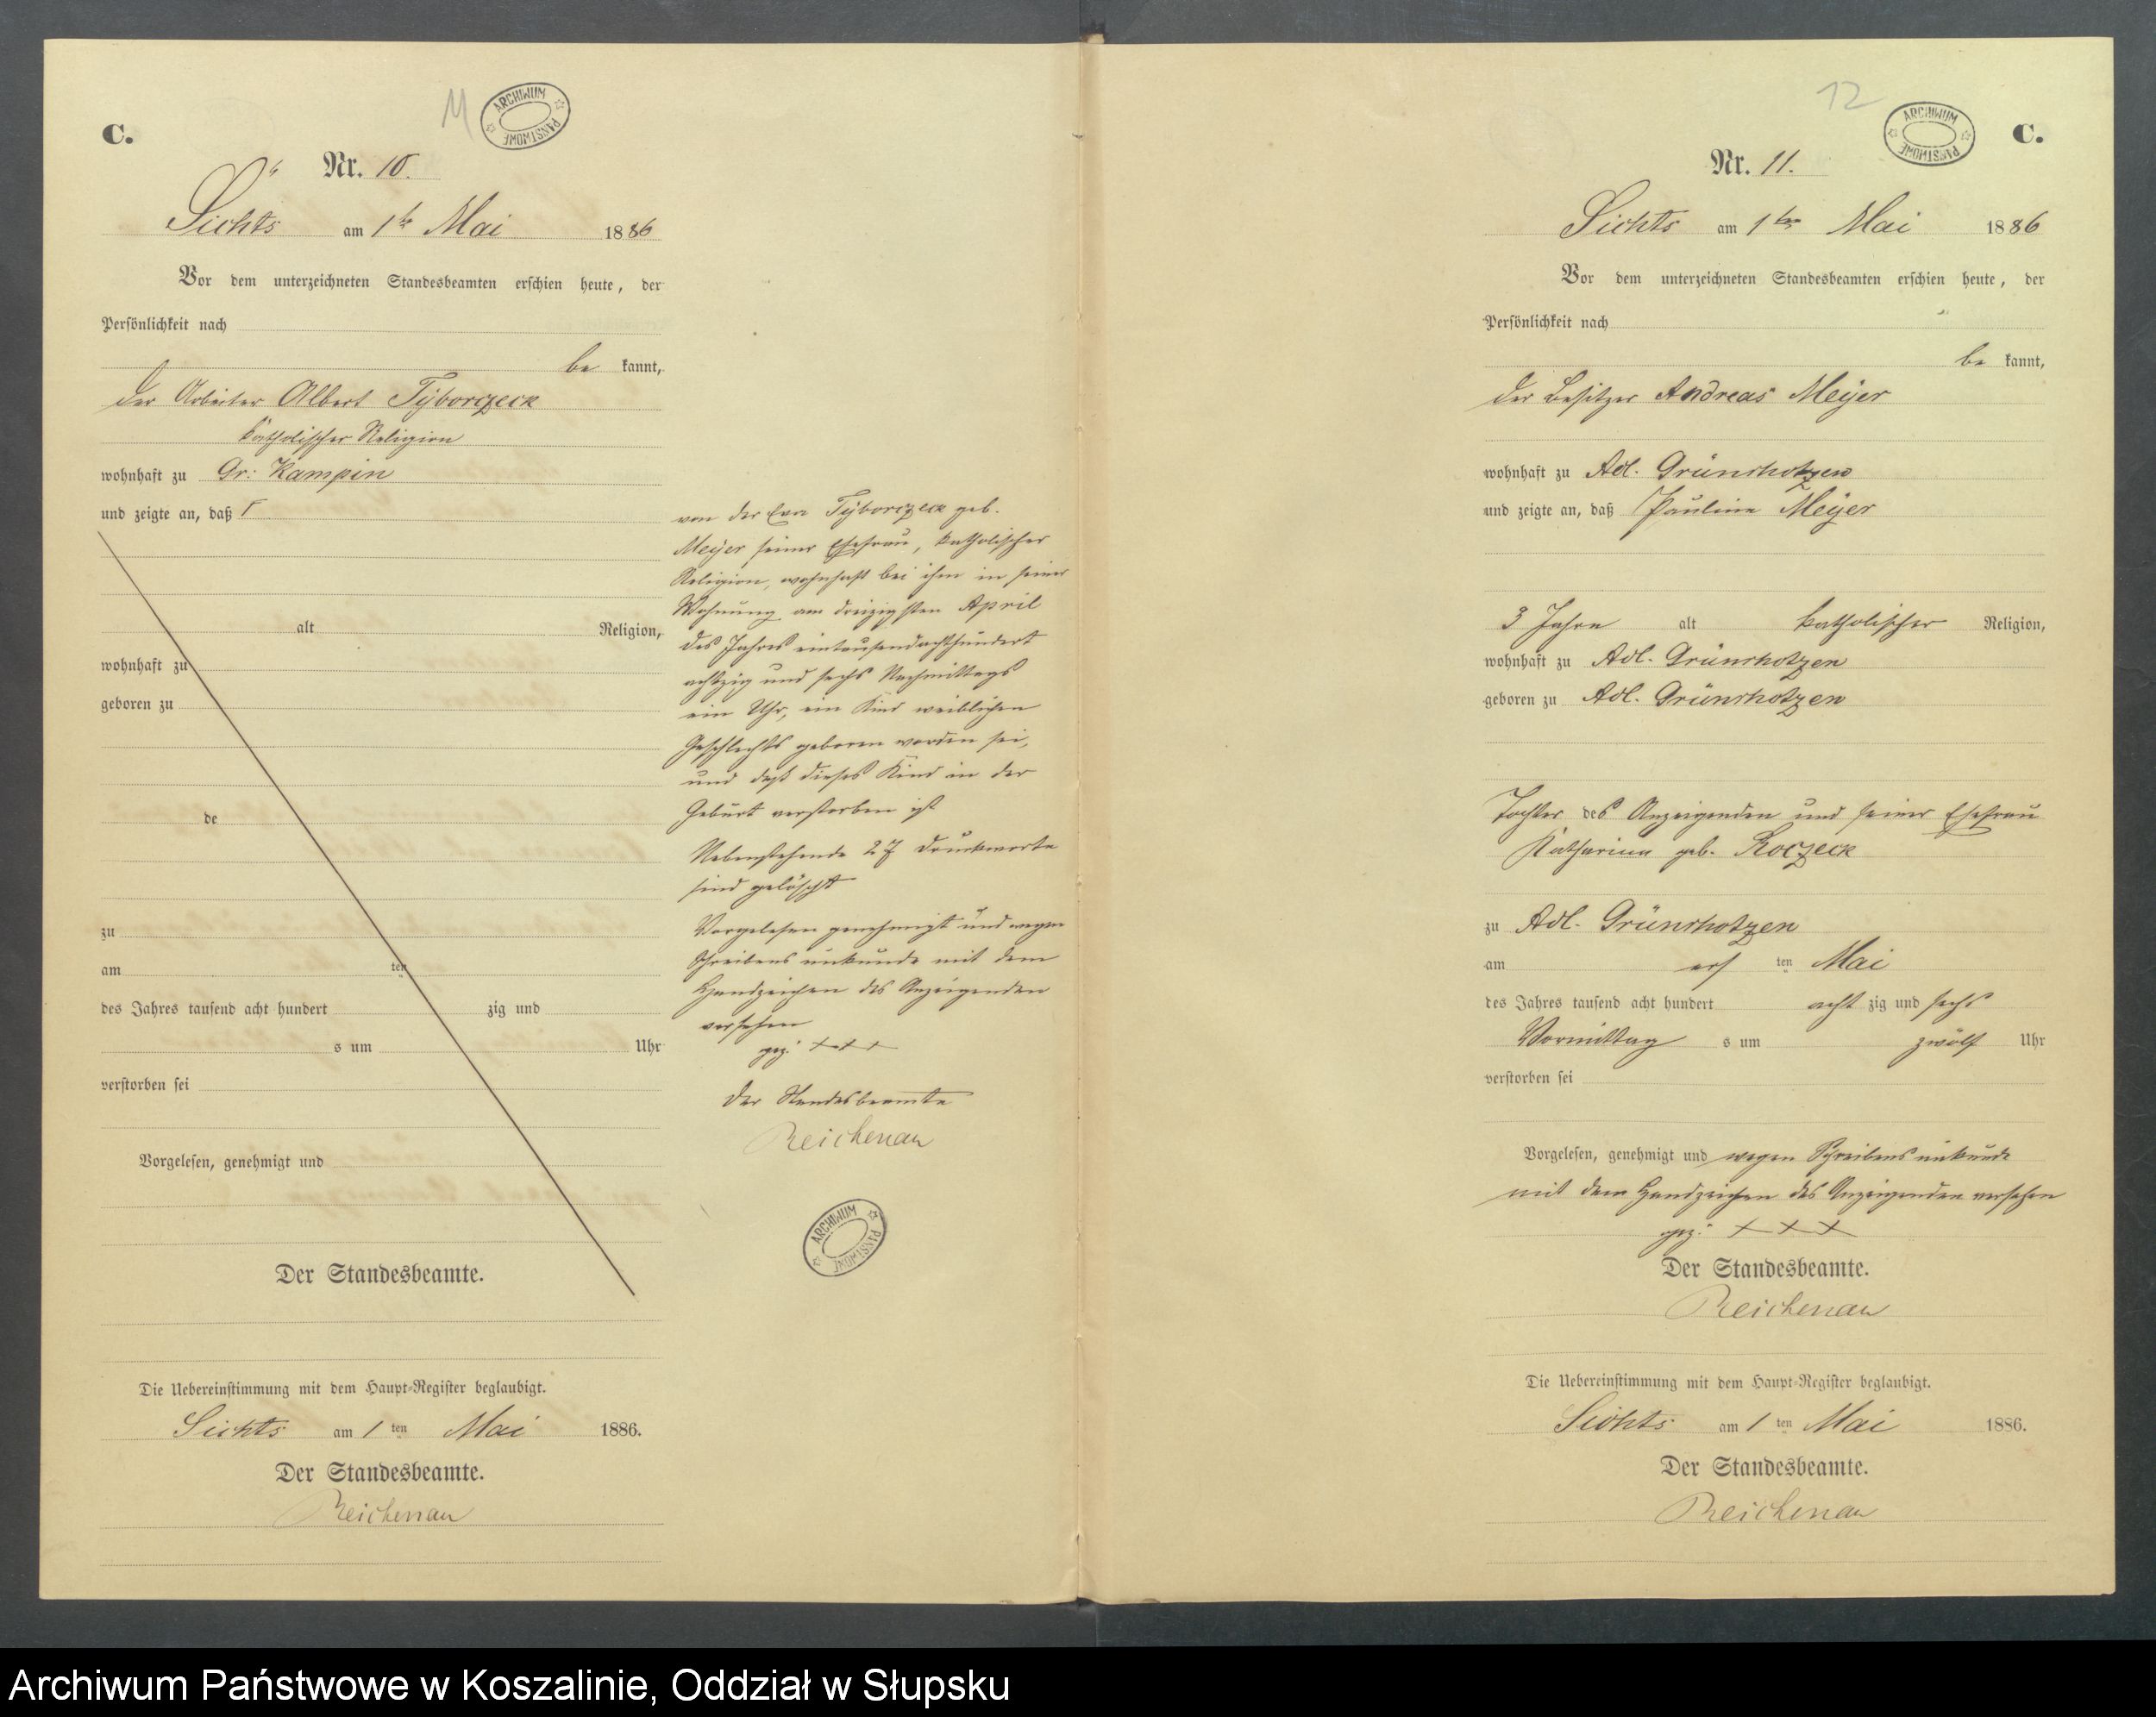 11
ARCHIWUM PAŃSTWOWE
C.
Nr. 10.
Sichts am 1ten Mai 1886
Vor dem unterzeichneten Standesbeamten erschien heute, der
Persönlichkeit nach
be kannt,
der Arbeiter Albert Tÿborczeck
katholischer Religion
wohnhaft zu Gr: Kampin
und zeigte an, daß Γ
alt Religion,
wohnhaft zu
geboren zu
de
zu
am ten
des Jahres tausend acht hundert zig und
s um Uhr
verstorben sei
Vorgelesen, genehmigt und
Der Standesbeamte.
Die Uebereinstimmung mit dem Haupt-Register beglaubigt.
Sichts am 1 ten Mai 1886.
Der Standesbeamte.
Reichenau
von der Eva Tÿborczeck geb.
Meÿer seiner Ehefrau, katholischer
Religion, wohnhaft bei ihm in seiner
Wohnung am dreizigsten April
des Jahres eintausendachthundert
achtzig und sechs Nachmittags
ein Uhr, ein Kind weiblichen
Geschlechts geboren worden sei,
und daß dieses Kind in der
Geburt verstorben ist
Nebenstehende 27 Druckworte
sind gelöscht
Vorgelesen genehmigt und wegen
Schreibensunkunde mit dem
Handzeichen des Anzeigenden
versehen
gez: + + +
Der Standesbeamte
Reichenau
ARCHIWUM PAŃSTWOWE
12
ARCHIWUM PAŃSTWOWE
C.
Nr. 11.
Sichts am 1ten Mai 1886
Vor dem unterzeichneten Standesbeamten erschien heute, der
Persönlichkeit nach
be kannt,
der Besitzer Andreas Meÿer
wohnhaft zu Adl. Grünchotzen
und zeigte an, daß Pauline Meÿer
3 Jahre alt katholischer Religion,
wohnhaft zu Adl. Grünchotzen
geboren zu Adl. Grünchotzen
Tochter des Anzeigenden und seiner Ehefrau
Katharina geb. Koczeck
zu Adl. Grünchotzen
am ers ten Mai
des Jahres tausend acht hundert acht zig und sechs
Vormittag s um zwölf Uhr
verstorben sei
Vorgelesen, genehmigt und wegen Schreibensunkunde
mit dem Handzeichen des Anzeigenden versehen
gez: + + +
Der Standesbeamte.
Reichenau
Die Uebereinstimmung mit dem Haupt-Register beglaubigt.
Sichts am 1 ten Mai 1886.
Der Standesbeamte.
Reichenau
Archiwum Państwowe w Koszalinie, Oddział w Słupsku